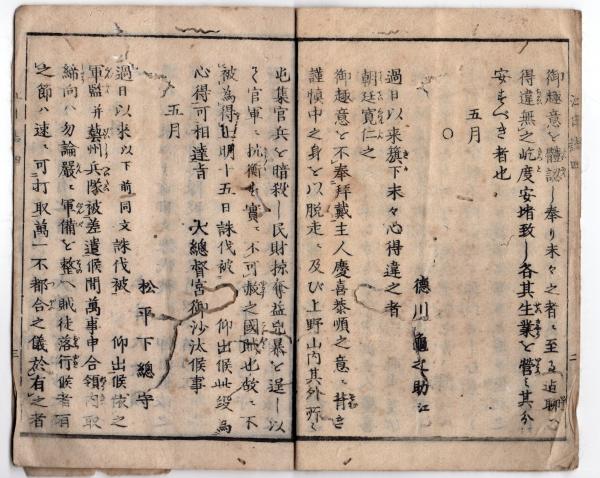 御趣意を體認し奉り末々之者に至る迄聊心
得違無之屹度安堵致し各其生業を營み其分
安すべき者也
五月
○
德川龜之助江
過日以来旗下末々心得違之者
朝廷寛仁之
御趣意を不奉拜戴主人慶喜恭順之意に背き
謹慎中之身を以脱走に及び上野山内其外所々
屯集官兵を暗殺し民財掠奪益兇暴を逞し以
て官軍に抗衡す實に不可赦之國賊也故に不
被為得止明十五日誅伐被 仰出候此段為
心得可相達旨 大總督宮御沙汰候事
五月
松平下總守
過日以来以下前同文誅伐被 仰出候依之
軍監并藝州兵隊被差遣候間萬事申合領内取
締向ハ勿論嚴に軍備を整へ賊徒落行候者有
之節ハ速に可打取萬一不都合之儀於有之者